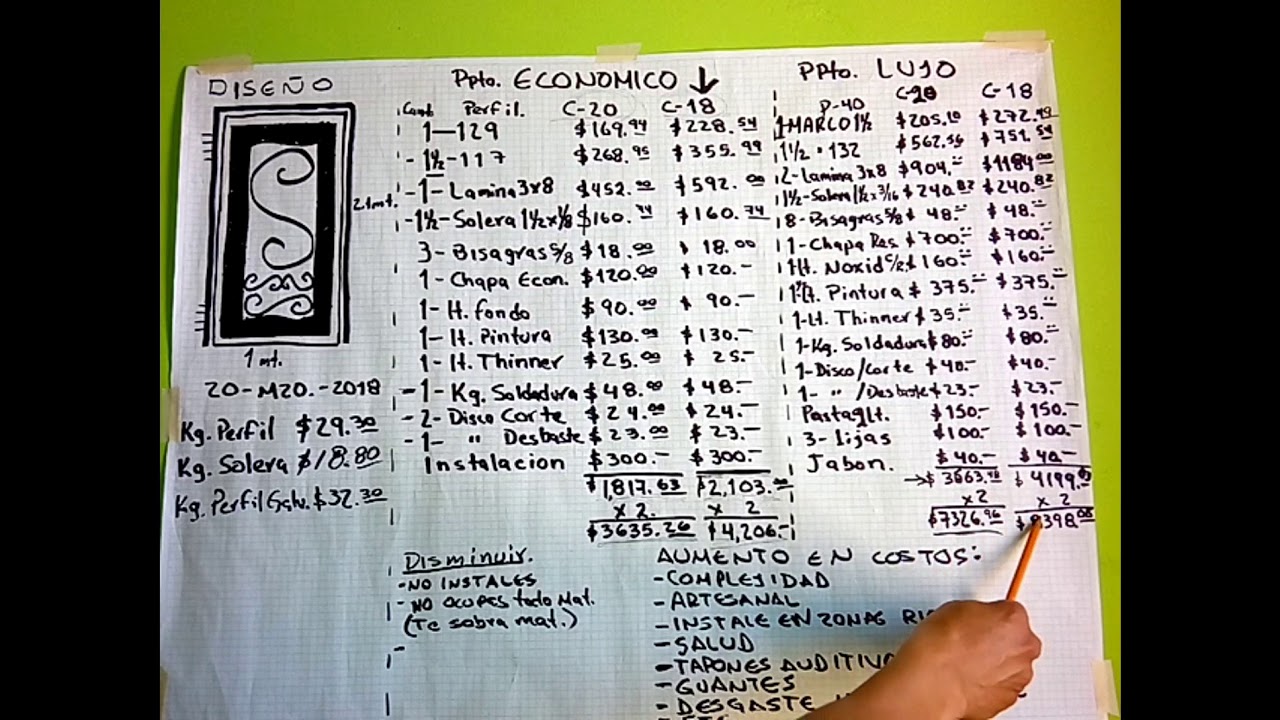 DISEÑO
2.1mt.
1 mt.
20-MZO.-2018
Kg. Perfil $29.30
Kg. Solera $18.80
Kg. Perfil Galv. $32.30
Ppto. ECONOMICO ↓
Cant Perfil. C-20 C-18
1-129 $169.94 $228.54
-1½-117 $268.95 $355.99
-1-Lamina 3x8 $452.00 $592.00
-1½-Solera 1½x⅛ $160.74 $160.74
3-Bisagras 5/8 $18.00 $18.00
1-Chapa Econ. $120.00 $120.-
1-lt. fondo $90.00 $90.-
1-lt. Pintura $130.00 $130.-
1-lt. Thinner $25.00 $25.-
-1-Kg. Soldadura $48.00 $48.-
-2-Disco Corte $24.00 $24.-
-1- " Desbaste $23.00 $23.-
Instalacion $300.- $300.-
$1,817.63 $2,103.00
x 2. x 2
$3635.26 $4,206.-
Ppto. LUJO
P-40 C-20 C-18
1 MARCO 1½ $205.10 $272.99
1½ - 132 $562.56 $751.54
2-Lamina 3x8 $904.- $1184.00
1½-Solera 1½ x 3/16 $240.82 $240.82
8-Bisagras 5/8 $48.- $48.-
1-Chapa Res $700.- $700.-
1 lt. Noxid $160.- $160.-
1 lt. Pintura $375.- $375.-
1-Lt. Thinner $35.- $35.-
1-Kg. Soldadura $80.- $80.-
1-Disco/Corte $40.- $40.-
1- " /Desbaste $23.- $23.-
Pasta $150.- $150.-
3-lijas $100.- $100.-
Jabon. $40.- $40.-
→$3663.48 $4199.
x2 x 2
$7326.96 $8398.08
Disminuir.
-NO INSTALES
-NO OCUPES todo Mat.
(Te sobra mat.)
-
AUMENTO EN COSTOS:
-COMPLEJIDAD
-ARTESANAL
-INSTALE EN ZONAS
-SALUD
-TAPONES AUDITIV
-GUANTES
-DESGASTE